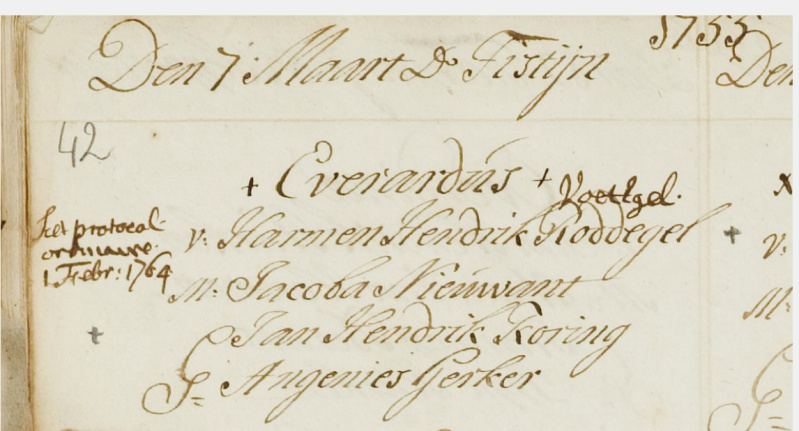 1755
Den 7 Maart Ds Tistijn
Den
42
+ Everardus +
Voettgel.
x
Het protocol
ordinaire
1 Febr: 1764
v: Harmen Hendrik Roddegel +
v:
M: Jacoba Nieuwant
M:
+
Jan Hendrik Koring
G= Angenies Gerker
G=